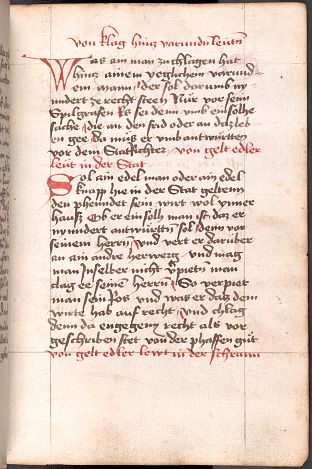 von klag hintz vorundn leutn
Was ain man zuchlagen hat
hintz ainem yeglichem vorund
em mann der sol darumb ny
mndert ze recht steen Nur vor seim
Spilgrafen Es sei denn umb ein solhe
sache die an den frid oder an daz leb
en gee Do müs er umb antwürtten
vor dem Statrichter von gelt edler
leüt in der Stat
Sol ain edel man oder ain edel
knapp hie in der Stat geltenn
den phendet sein wirt wol in mer
hausz Ob er ein solh man ist daz er
nymndert antwürttn sol dem vor
seinem herrn und vert er daruber
an ain andre herwerg und mag
man In selber nicht v̈pietn man
clag ee seine herrn So verpiet
man sein Ros und was er dass dem
wirte hab auf recht und chlag
denn da engegenn recht als vor
geschriben stet von der phaffen gut
von gelt edler lewt in der schrann